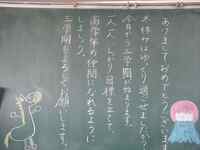 あけましておめでとうございます。
冬休みはゆっくり過ごせましたか？
今日から三学期が始まります。
一人一人しっかり目標を立てて、
高学年の仲間になれるように
しましょう。
三学期もよろしくお願いします。